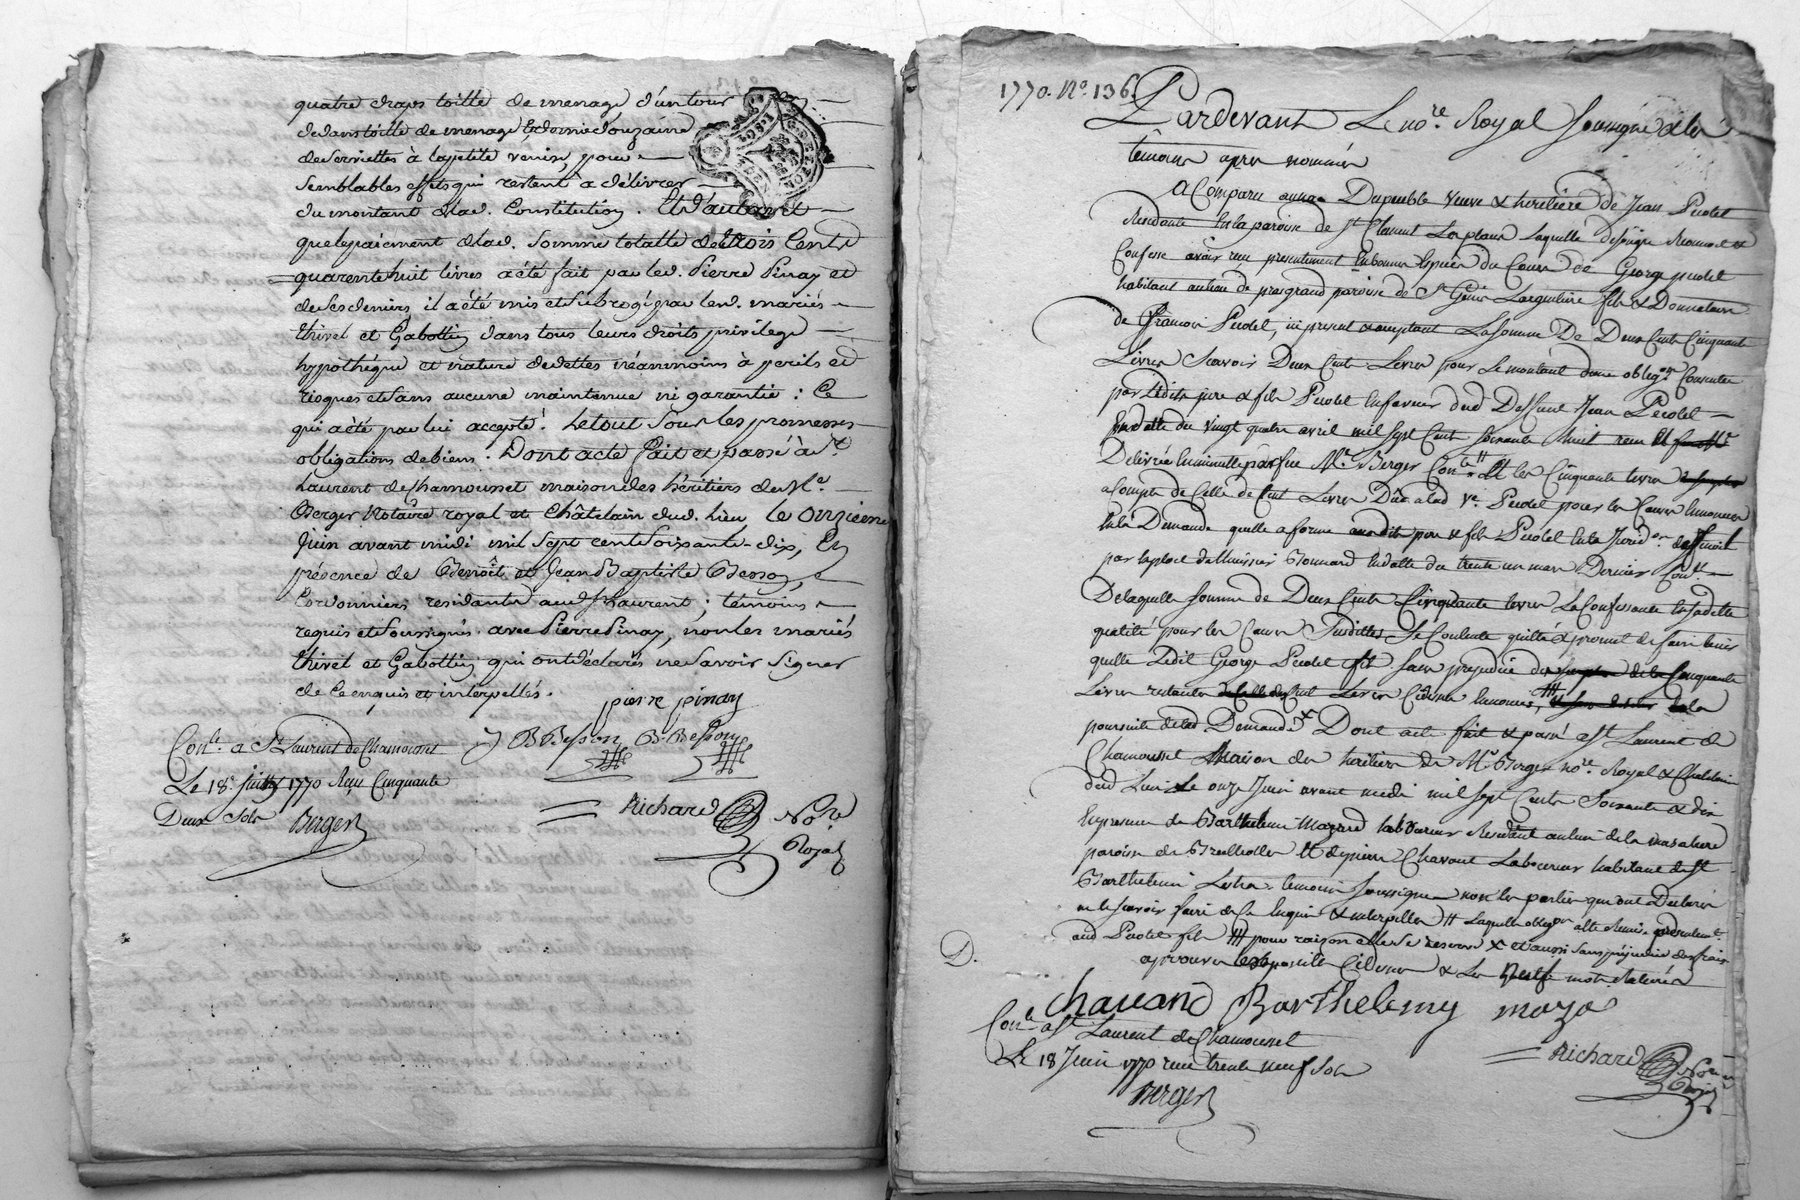 quatre draps toille de menage d'un tour
dedans toille de menage & demie douzaine
de serviettes à la petite venise, pour
semblables effets qui restent à délivrer
du montant de lad. Constitution. Et d'autant
que le paiement de lad. somme totalle de trois Cents
quarente huit livres a été fait par led. Pierre Pinay et
de ses deniers il a été mis et subrogé par lesd. mariés
thivel et Gabottin dans tous leurs droits privilege
hypothéque et nature de dettes néammoins à perils et
risques et sans aucune maintenue ni garantie : Ce
qui a été par lui accepté. Le tout sous les promesses
obligations de biens. Dont acte fait et passé à St.
Laurent de Chamousset maison des héritiers de Me.
Berger Notaire royal et Châtelain dud. lieu le onzieme
Juin avant midi mil sept cent soixante-dix, En
présence de Benoît et Jean Baptiste Besson,
Cordonniers residants aud. St Laurent ; témoins
requis et soussignés avec Pierre Pinay, non les mariés
thivel et Gabottin qui ont déclarés ne savoir signer
de ce enquis et interpellés.
pierre pinay
B Besson B. Besson
Conlé. a St. Laurent de Chamousset
Le 18e. juin 1770 Reçu Cinquante
Deux Sols Berger
Richard Nore
Royal
1770. No. 136.
Pardevant Le nore. Royal soussigné & les
témoins apres nommés
A Comparu anne Dupeuble veuve & heritiere de Jean Perotel
Residente en la paroisse de St Clement Les places laquelle de son gré Reconnoit &
Confesse avoir reçu presentement en bonnes especes du Cours de George perotel
habitant au lieu de pras grand paroisse de St Genis Largentiere fils & Donnataire
de francois Perotel, ici present & acceptant La somme De Deux Cents Cinquante
Livres Scavoir Deux Cents Livres pour le montant d'une obligon. Consentie
par lesdits pere & fils Perotel en faveur dud. Deffunt Jean Perotel
en datte du vingt quatre avril mil sept Cent soixante huit recue
Delivrée en minutte par feu Me. Berger Conlée. # Et les Cinquante livres
a Compte de Celle de Cent Livres Düe a lad. ve. Perotel pour les Causes Enoncées
En la Demande quelle a formé auxdits pere & fils Perotel en la Juridon. de
par exploit de l'huissier Bonnard en datte du trente un mars Dernier Conlé.
De laquelle somme de Deux Cents Cinquante livres La Confessante En sadite
qualité pour les Causes Susdittes Se Contente quitte & promet de faire tenir
quitte Ledit George Perotel fils sans prejudice des Cinquante
Livres restantes de Celle de Cent Livres Cidessus Enoncés, ###
poursuite de lad. Demande x Dont acte fait & passé a St Laurent de
Chamousset Maison des heritiers de Me. Berger nore. Royal & Chatelain
dud. Lieu Le onze Juin avant midi mil sept Cents Soixante & dix
En presence de Barthelemi Mazard laboureur Residant au lieu de la
paroisse de Et de pierre Chavant Laboureur habitant de St
Barthelemi Lestra temoins soussignés non les parties qui ont Declarés
ne le scavoir faire de Ce Enquis & interpellés # laquelle obligon. a été Remise presentemt.
aud. Perotel fils ### pour raison elle se reserve x et aussi sans préjudice des frais
approuvés les apostilles Cidessus & Les neuf mots Raturés
D.
chavanD Barthelemy mazo
Conlé. a St Laurent de Chamousset
Le 18 Juin 1770 recu trente neuf sols
Berger
Richard Nore
Royal